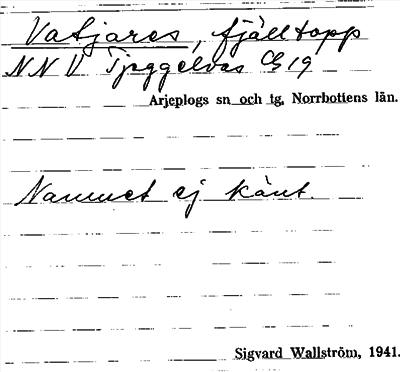 Vatjares, fjälltopp
NNV Tjeggelvas C519
Arjeplogs sn och tg. Norrbottens län.
Namnet ej känt.
Sigvard Wallström, 1941.